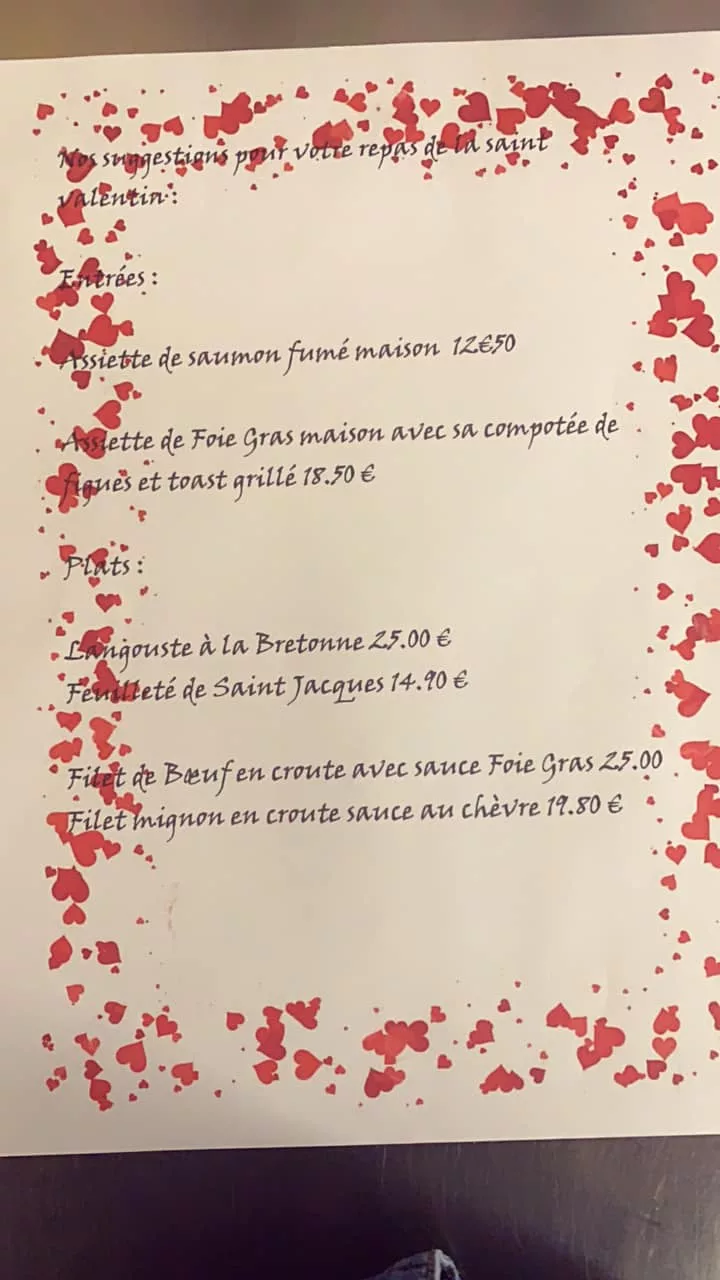 Nos suggestions pour votre repas de la saint
valentin :
Entrées :
Assiette de saumon fumé maison 12€50
Assiette de Foie Gras maison avec sa compotée de
figues et toast grillé 18.50 €
Plats :
Langouste à la Bretonne 25.00 €
Feuilleté de Saint Jacques 14.90 €
Filet de Bœuf en croute avec sauce Foie Gras 25.00
Filet mignon en croute sauce au chèvre 19.80 €